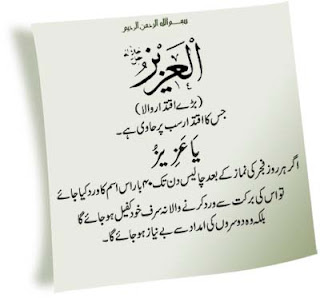 بسم الله الرحمن الرحيم
اَلْعَزِيْزُ جل جلالہ
(بڑے اقتدار والا)
جس کا اقتدار سب پر حاوی ہے۔
یَا عَزِیْزُ
اگر ہر روز فجر کی نماز کے بعد چالیس دن تک ۴۰ بار اس اسم کا ورد کیا جائے
تو اس کی برکت سے ورد کرنے والا نہ صرف خود کفیل ہو جائے گا
بلکہ وہ دوسروں کی امداد سے بے نیاز ہو جائے گا۔